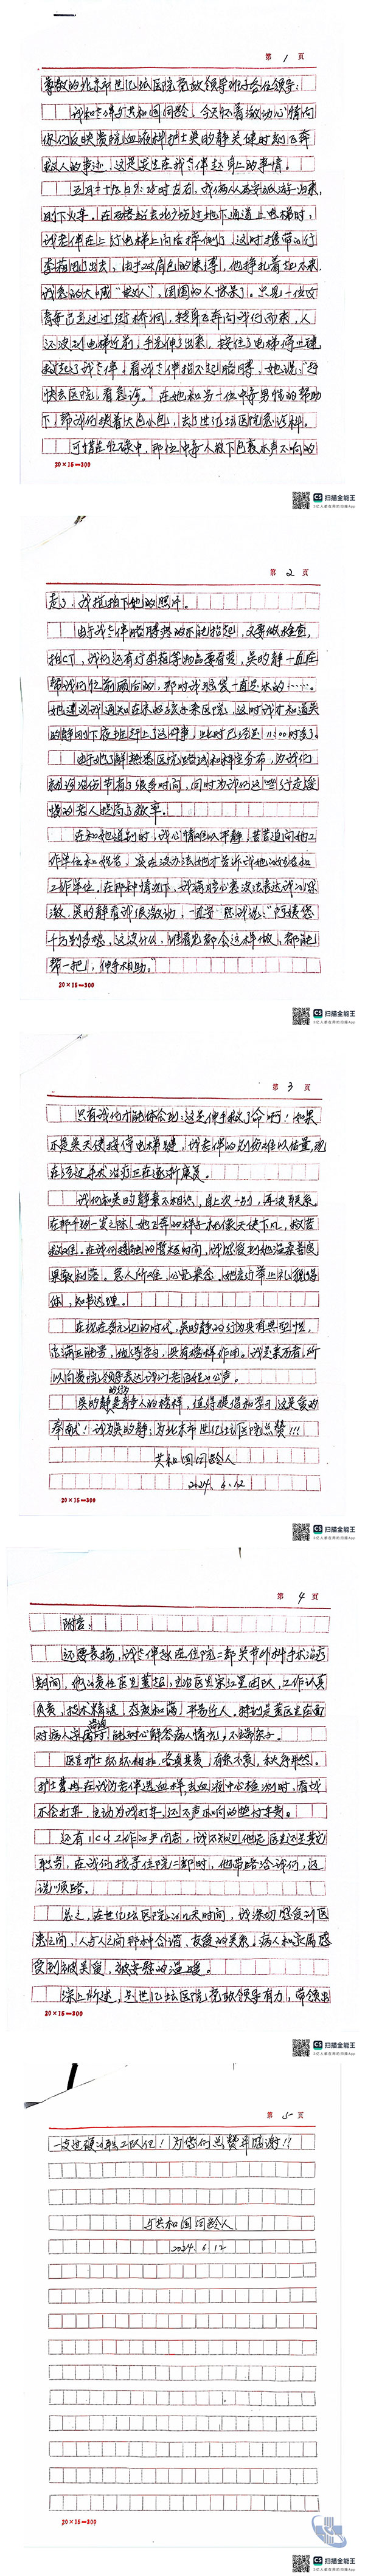 第 1 页
尊敬的北京市世纪坛医院党政领导你好各位领导:
我和老伴与共和国同龄,今天怀着激动心情向
你们反映贵院血液科护士吴的静关键时刻飞奔
救人的事迹,这是发生在我老伴赵身上的事情。
五月十九日9:25时左右,我俩人去宁波游归来,
刚下火车。在西客站去北广场过地下通道上电梯时,
我老伴在上行电梯上向后摔倒了,这时携带的行
李箱甩了出去,由于双肩包的束缚,他挣扎着起不来.
我急的大喊“救人”,周围的人惊呆了。只见一位女
青年已走过过街桥洞,转身飞奔向我们而来,人
还没到电梯近前,手先伸了出来,按住了电梯停止键
救起了我老伴,看我老伴抬不起胳膊,她说:“赶
快去医院,看急诊。”在她和另一位中年男性的帮助
下,帮我们拽着大包小包,去了世纪坛医院急诊科。
可惜在忙碌中,那位中年人放下包裹不声不响的
20×15=300
扫描全能王
3亿人都在用的扫描App
第 2 页
走了,我没拍下他的照片。
由于我老伴胳膊疼的不能抬起,又要做检查,
拍CT,我们还有行李箱等物品要看管,吴的静一直在
帮我们忙前顾后的,那时我感觉一直是木的……。
她遭遇我通知在京的孩子来医院,这时我才知道吴
的静刚下夜班赶上了这件事,此时已经是11:00时多了。
由于她了解熟悉医院路线和科室分布,为我们
就诊治伤节省了很多时间,同时为我们这些行走缓
慢的老人提高了效率。
在和她道别时,我心情难以平静,苦苦追问她工
作单位和姓名,实在没办法她才告诉我她的姓名和
工作单位。在那种情况下,我满腔心意没法表达我的感
激,吴的静看我很激动,一直安慰我说:“阿姨您
千万别客气,这没什么,谁看见都会这样做,都能
帮一把,伸手相助。”
20×15=300
扫描全能王
3亿人都在用的扫描App
第 3 页
只有我们才能体会到:这是伸手救了命啊!如果
不是吴天使按停电梯键,我老伴的别伤难以估量,现
在经过手术治疗正在逐渐康复。
我们和吴的静素不相识,自上次一别,再没联系。
在那千钧一发之际,她飞奔的样子犹如像天使下凡,救苦
救难。在我们接触的暂短时间,我感觉到她温柔善良
果敢利落。急人所难,心地柔念。她言行举止礼貌得
体,知书达理。
在现在多元化的时代,吴的静的行为具有典型性,
充满正能量,值得学习,具有榜样作用。我老弟而有,所
以向贵院领导表达我们老百姓的心声。
的行为
吴的静是青年人的榜样,值得提倡和学习,这是爱的
奉献!我为吴的静,为北京市世纪坛医院点赞!!!
共和国同龄人
2024.6.12
20×15=300
扫描全能王
3亿人都在用的扫描App
第 4 页
附言:
还要表扬,我老伴赵在住院二部关节外科手术治疗
期间,他的责任医生董超,主治医生宋红星团队,工作认真
负责,技术精湛,态度和蔼,平易近人。特别是董医生在面
咨询
对病人家属时,能耐心解答病人情况,不端架子。
医生护士紛紛相扣,各负其责,有条不紊,秩序井然。
护士曹冉在我为老伴送血样,去血液中心检测时,看我
不会打车,主动为我打车,还不声不响的垫付车费。
还有ICU工作的尹周育,我不知他是医生还是其它
职务,在我们找寻住院二部时,他带路给我们,还
说顺路。
总之,在世纪坛医院的几天时间,我深切感受到医
患之间,人与人之间那种合谐、友爱的关系。病人和家属感
受到被关爱、被安慰的温暖。
综上所述,是世纪坛医院党政领导有力,带领出
20×15=300
扫描全能王
3亿人都在用的扫描App
第 5 页
一支过硬的职工队伍!为你们点赞并感谢!!
与共和国同龄人
2024.6.12
20×15=300
扫描全能王
3亿人都在用的扫描App